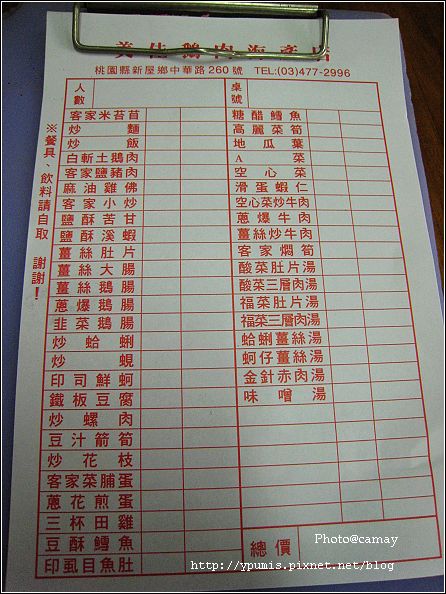 美佳鵝肉海產店
桃園縣新屋鄉中華路260號 TEL:(03)477-2996
人數
桌號
※餐具、飲料請自取 謝謝!
客家米苔苜
炒麵
炒飯
白斬土鵝肉
客家鹽豬肉
麻油雞佛
客家小炒
鹽酥苦甘
鹽酥溪蝦
薑絲肚片
薑絲大腸
薑絲鵝腸
蔥爆鵝腸
韭菜鵝腸
炒蛤蜊
炒蜆
印司鮮蚵
鐵板豆腐
炒螺肉
豆汁箭筍
炒花枝
客家菜脯蛋
蔥花煎蛋
三杯田雞
豆酥鱈魚
印虱目魚肚
糖醋鱈魚
高麗菜筍
地瓜葉
A菜
空心菜
滑蛋蝦仁
空心菜炒牛肉
蔥爆牛肉
薑絲炒牛肉
客家燜筍
酸菜肚片湯
酸菜三層肉湯
福菜肚片湯
福菜三層肉湯
蛤蜊薑絲湯
蚵仔薑絲湯
金針赤肉湯
味噌湯
總價
Photo@camay
http://ypumis.pixnet.net/blog